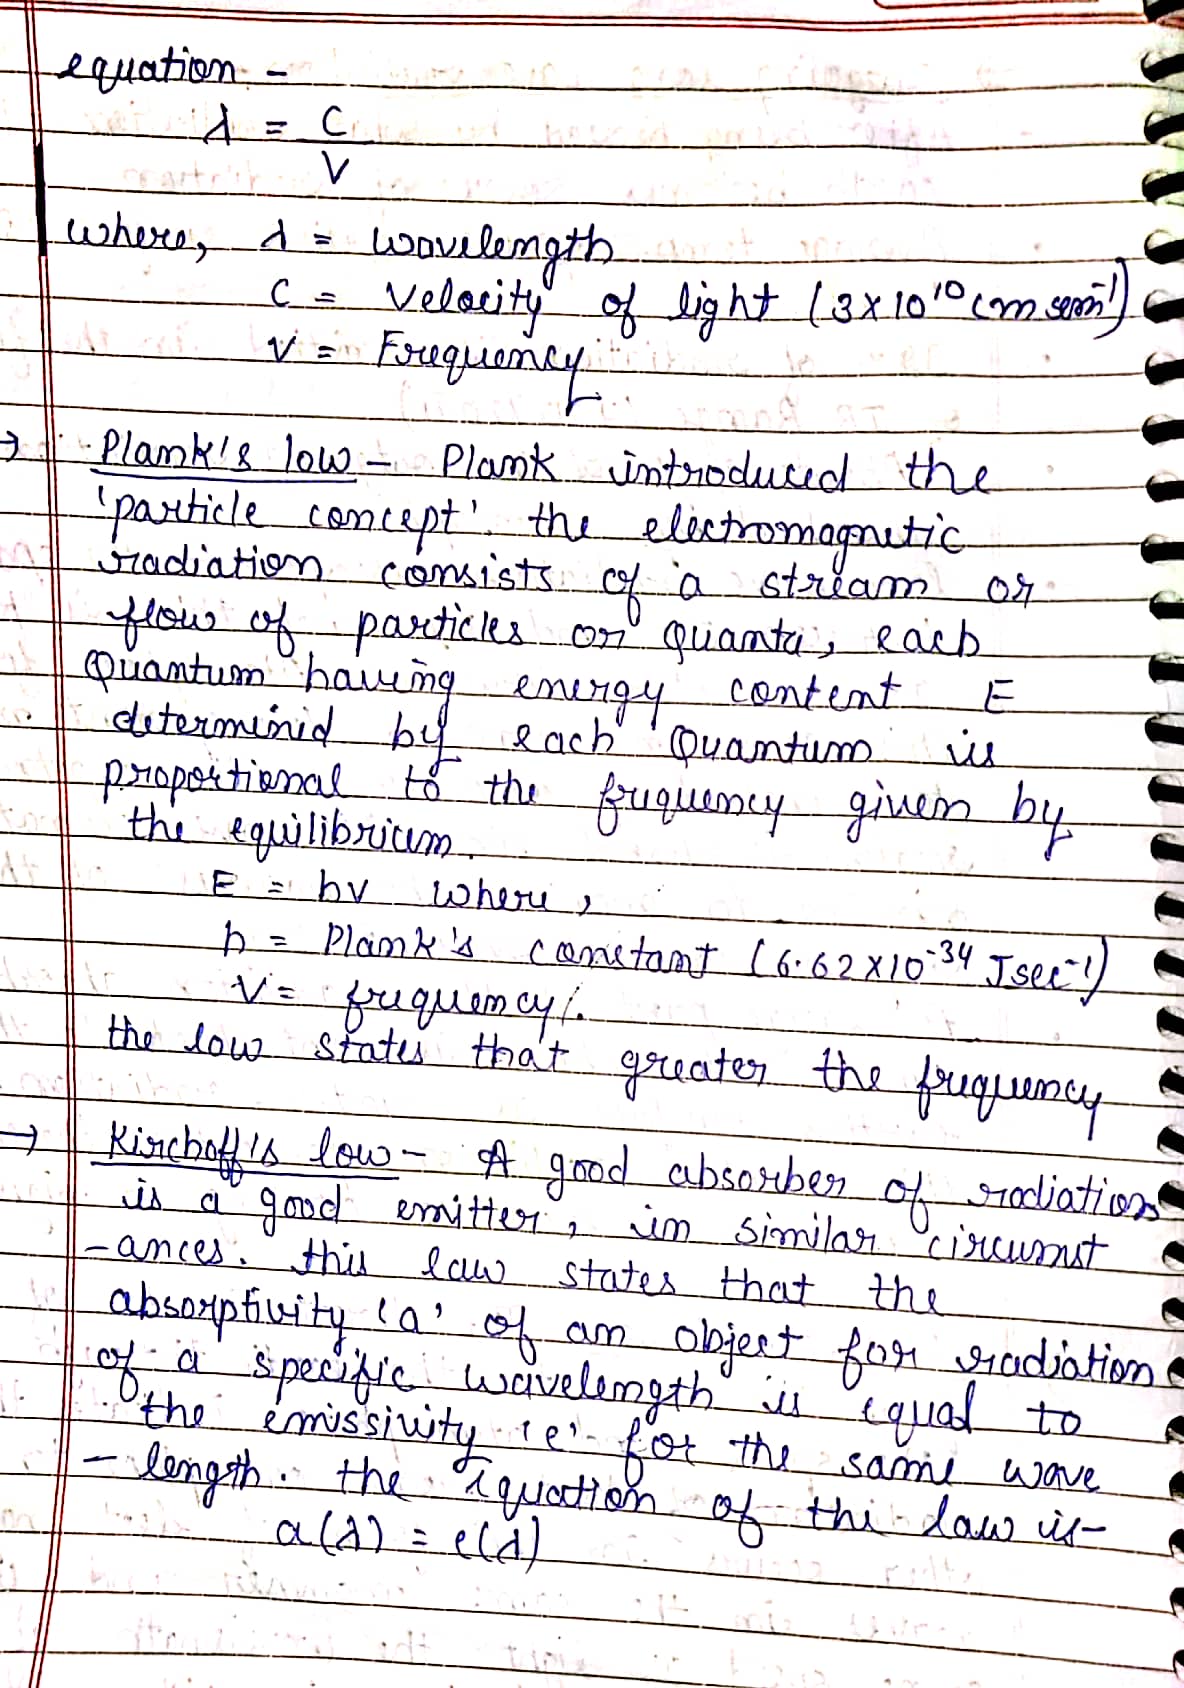 equation -
λ = C
V
where, λ = wavelength
C = Velocity of light (3×10¹⁰ cm
V = Frequency
→ Plank's low - Plank introduced the
'particle concept'. the electromagnetic
radiation consists of a stream or
flow of particles or quanta, each
Quantum having energy content E
determinid by each Quantum is
proportional to the frequency given by
the equilibrium.
E = hv where,
h = Plank's constant (6.62×10⁻³⁴ Jsec⁻¹)
V = frequency.
the low states that greater the frequency
→ Kirchoff's low - A good absorber of radiation
is a good emitter, in similar circumst
-ances. this law states that the
absorptivity 'a' of an object for radiation
of a specific wavelength is equal to
the emissivity 'e' for the same wave
- length. the equation of the law is-
a(λ) = e(λ)